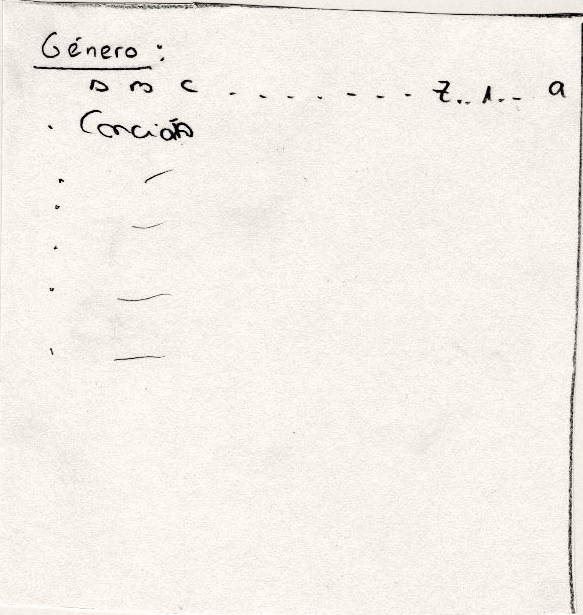 Género:
A B C . . . . . . . Z . . 1 . . 9
. Canción